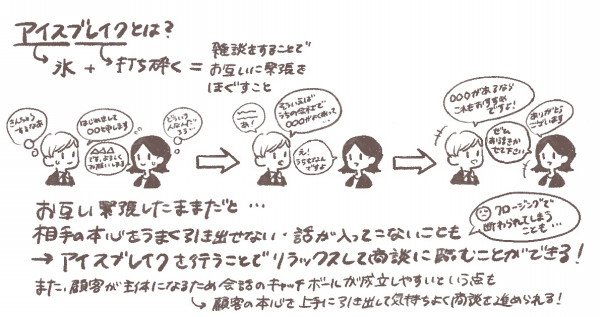 アイスブレイクとは?
氷 + 打ち砕く =
雑談をすることで
お互いに緊張を
ほぐすこと
きんちょう
するなあ
はじめまして
〇〇と申します
△△△
です。よろしく
お願いします
どういう
人なんだ
ろう…
あ!
そういえば
うちの会社で
〇〇〇が
え!
うちもなん
ですよ
〇〇〇があるなら
これもおすすめ
ですよ!
ぜひ
お話きか
せて下さい
ありがとう
ございます
お互い緊張したままだと…
相手の本心をうまく引き出せない・話が入ってこないことも
クロージングで
断わられてしまう
ことも…
→ アイスブレイクを行うことでリラックスして商談に臨むことができる!
また、顧客が主体になるため会話のキャッチボールが成立しやすいという点も
顧客の本心を上手に引き出して気持ちよく商談を進められる!